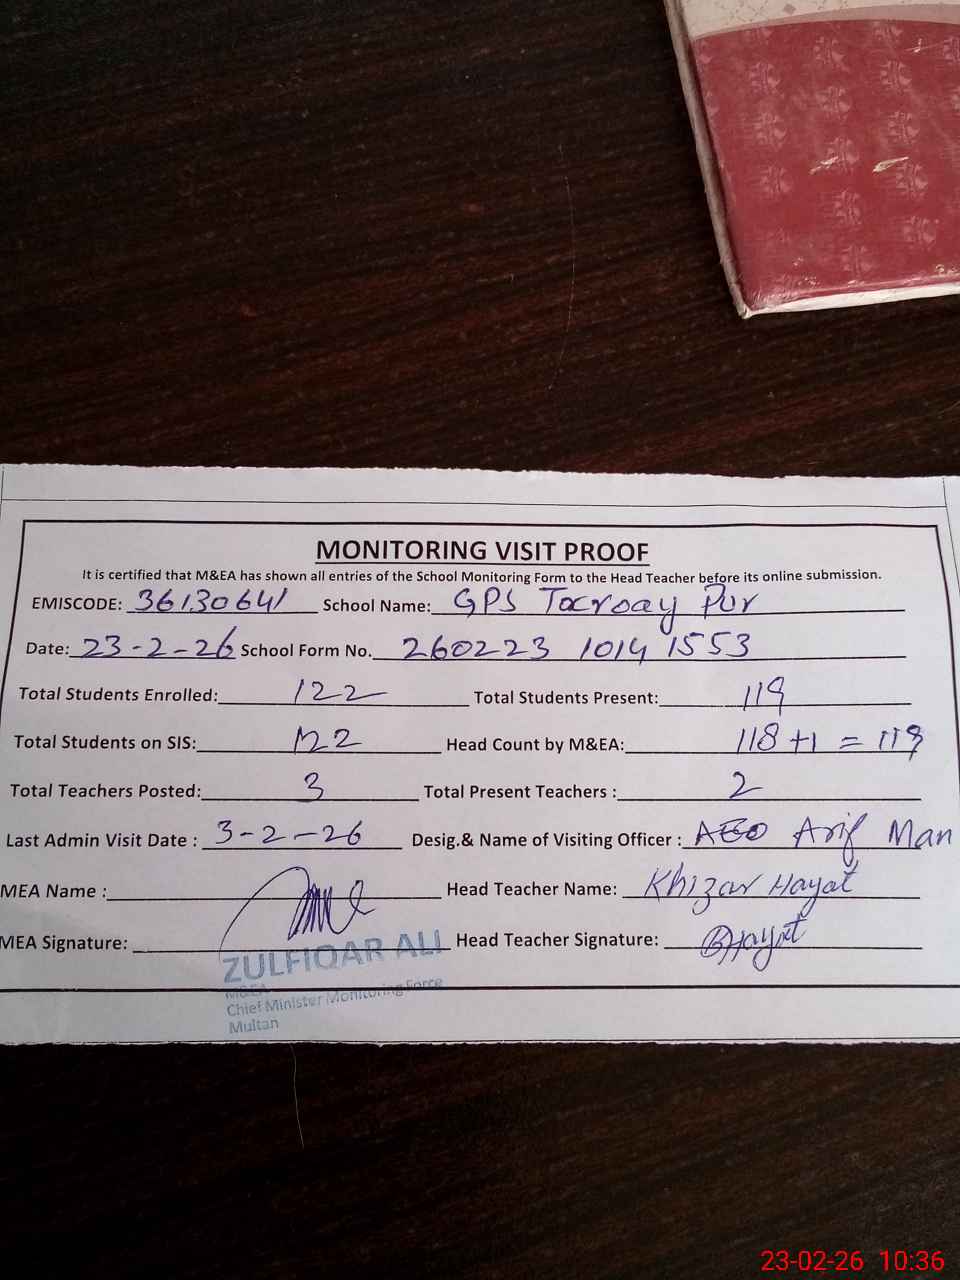 MONITORING VISIT PROOF
It is certified that M&EA has shown all entries of the School Monitoring Form to the Head Teacher before its online submission.
EMISCODE: 36130641 School Name: GPS Tocroay Pur
Date: 23-2-26 School Form No. 260223 1014 1553
Total Students Enrolled: 122 Total Students Present: 119
Total Students on SIS: 122 Head Count by M&EA: 118 +1 = 119
Total Teachers Posted: 3 Total Present Teachers : 2
Last Admin Visit Date : 3-2-26 Desig.& Name of Visiting Officer : AEO Arif Man
MEA Name : Head Teacher Name: Khizar Hayat
MEA Signature: Head Teacher Signature: Hayat
ZULFIQAR ALI
M&EA
Chief Minister Monitoring Force
Multan
23-02-26 10:36